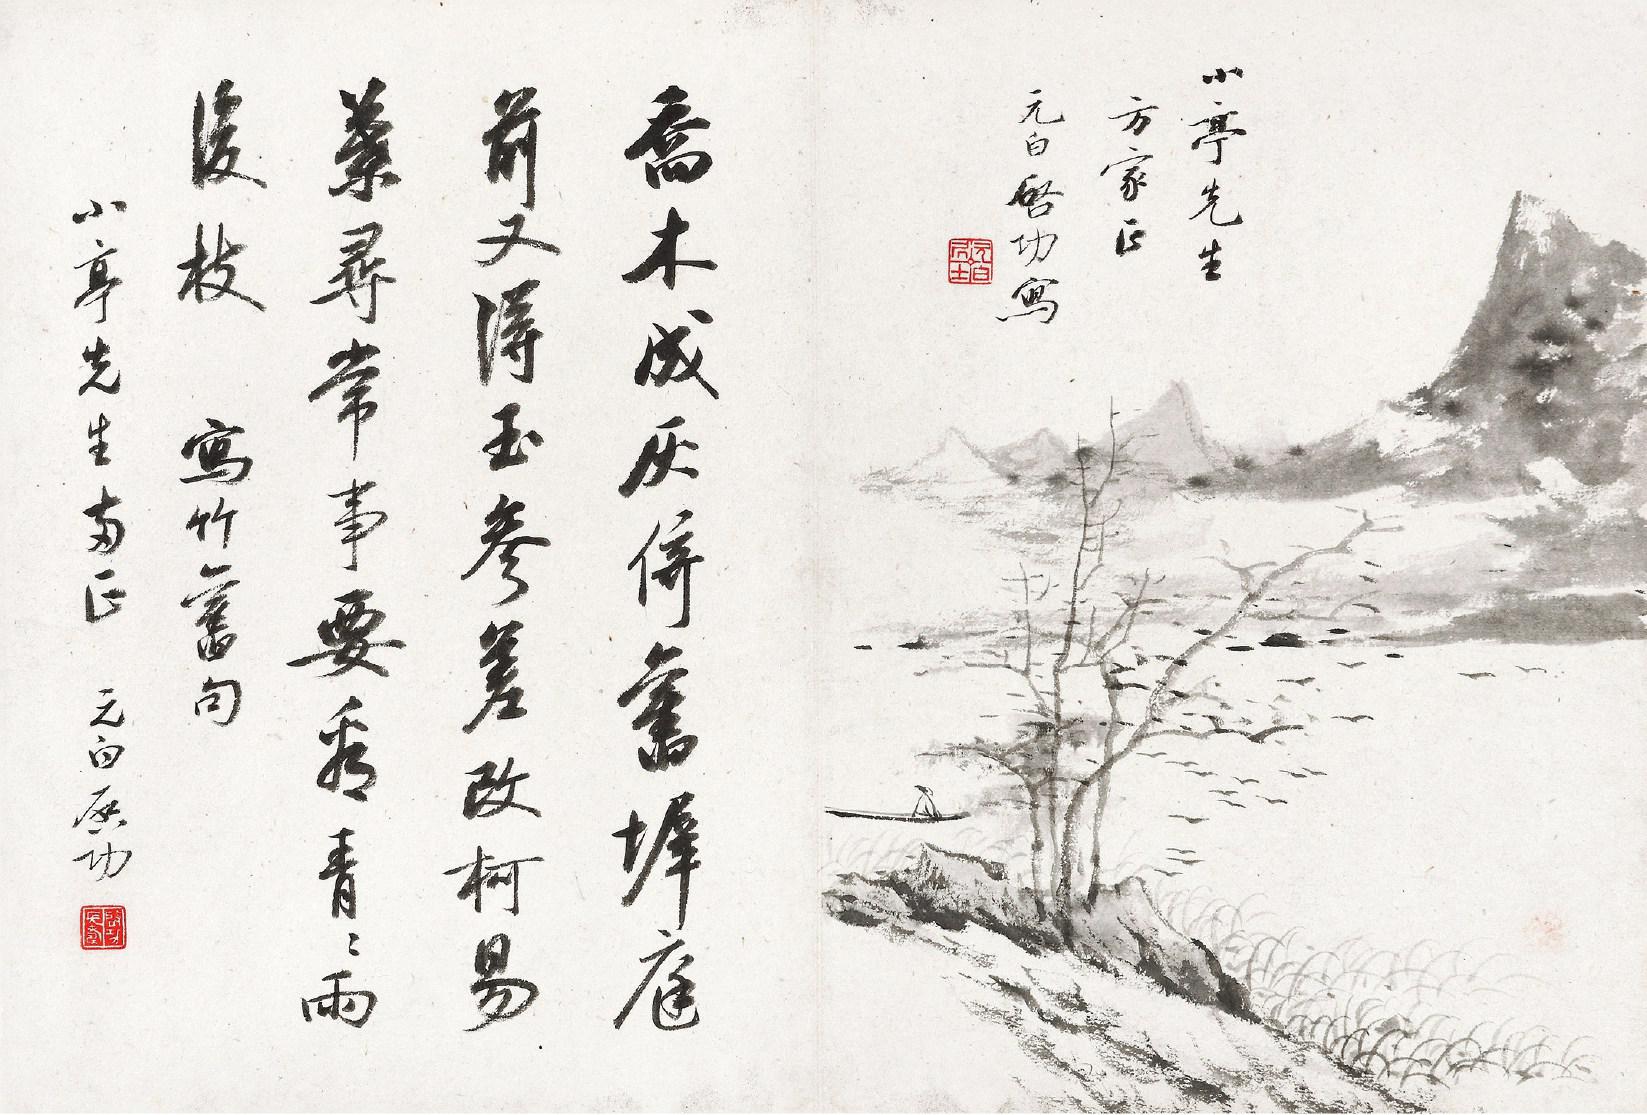 小亭先生
方家正
元白啓功寫
元白居士
喬木成灰併舊墀庭
前又得玉參差改柯易
葉尋常事要看青〻雨
後枝 寫竹舊句
小亭先生兩正 元白啟功